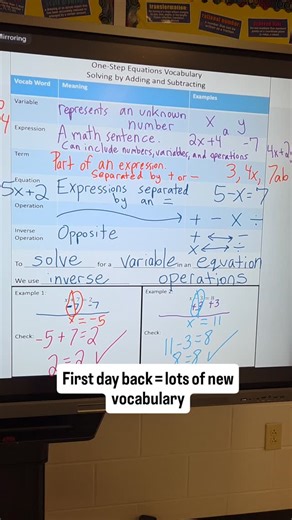 Mirroring
One-Step Equations Vocabulary
Solving by Adding and Subtracting
Vocab Word Meaning Examples
Variable represents an unknown number x a y
Expression A math sentence. Can include numbers, variables, and operations 2x+4 -7
Term Part of an expression. Separated by + or - 3, 4x, 7ab
Equation Expressions separated by an =
5x+2 5-x=
Operation + - x ÷
Inverse
Operation Opposite + ↔ -
x ↔ ÷
To solve for a variable in an equation
We use inverse operations
Example 1: Example 2:
-7 -7 +3 +3
x = -5 x = 11
Check: Check:
-5+7=2 11-3=8
2=2 ✓ 8=8 ✓
First day back = lots of new
vocabulary